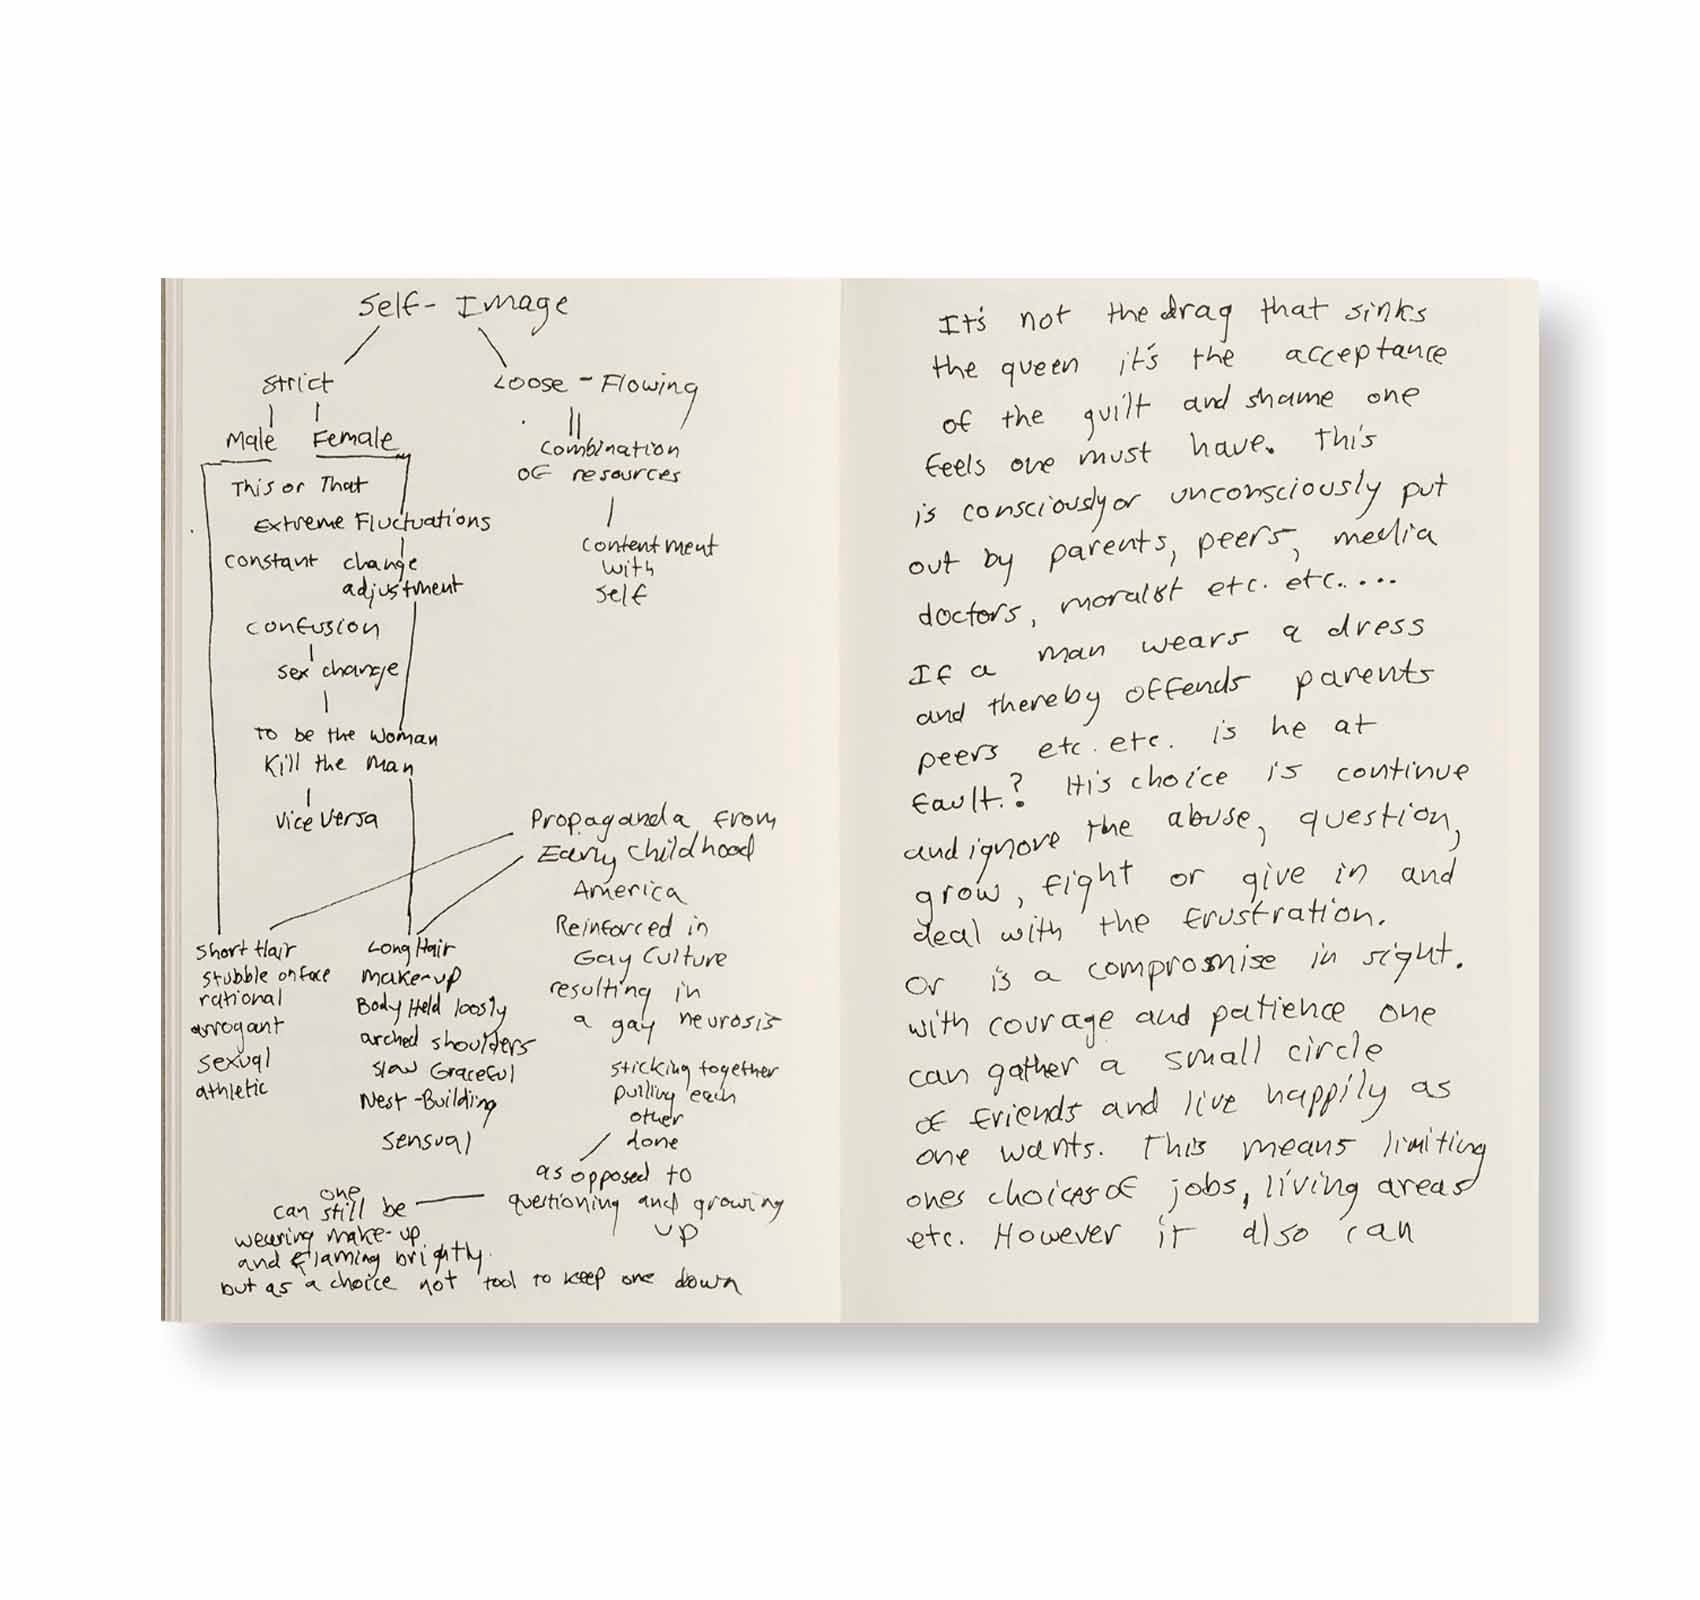 Self-Image
Strict
Male Female
This or That
Extreme Fluctuations
constant change
adjustment
confusion
sex change
to be the woman
Kill the man
vice versa
Loose-Flowing
combination
of resources
contentment
with
self
Propaganda from
Early childhood
America
Reinforced in
Gay Culture
resulting in
a gay neurosis
sticking together
pulling each
other
done
as opposed to
questioning and growing
up
short Hair
stubble on face
rational
arrogant
sexual
athletic
Long Hair
make-up
Body Held loosly
arched shoulders
slow Graceful
Nest-Building
sensual
one
can still be
wearing make-up
and flaming brightly.
but as a choice not tool to keep one down
It's not the drag that sinks
the queen it's the acceptance
of the guilt and shame one
feels one must have. This
is consciously or unconsciously put
out by parents, peers, media
doctors, moralist etc. etc.....
If a man wears a dress
and thereby offends parents
peers etc. etc. is he at
fault.? His choice is continue
and ignore the abuse, question,
grow, fight or give in and
deal with the frustration.
Or is a compromise in sight.
with courage and patience one
can gather a small circle
of friends and live happily as
one wants. This means limiting
ones choices of jobs, living areas
etc. However it also can